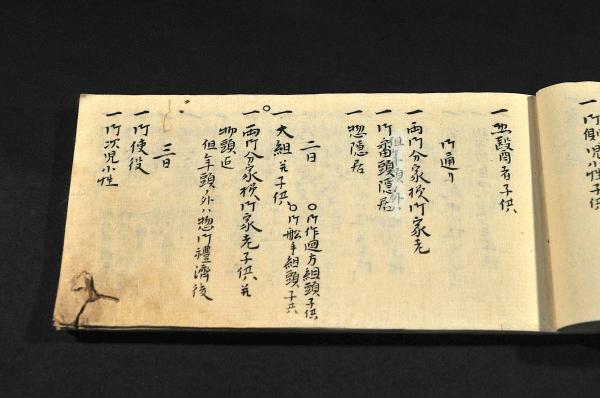 一御側児小性子供
一並醫師者子供
御通り
一両御分家家老
一御番頭隠居
但年頭ノ外ハ
一惣隠居
二日
○御作廻方組頭子供
○御船手組頭子供
一大組并子供
一両御分家様御家老子供并
物頭迄
但年頭ノ外ハ惣御禮濟後
三日
一御使役
一御次児小性